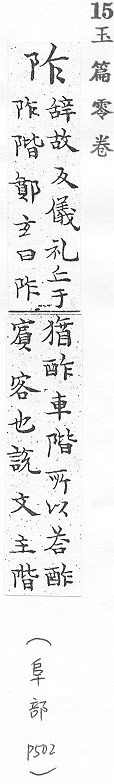 15 玉篇零卷
阼
辞故反儀礼立于
阼階鄭玄曰阼
猶酢車階所以荅酢
賓客也說文主階
（阜部 P502）